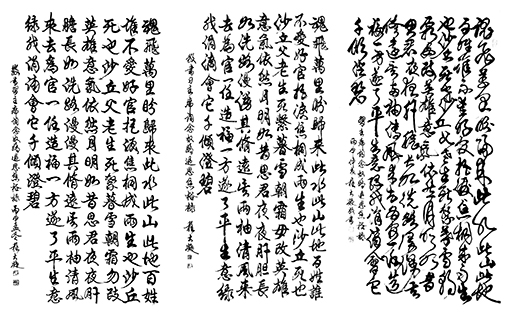 魂飛萬里盼歸來此水此山此地
百姓誰不愛好官把淚焦桐成雨生
也沙丘死也沙丘父老生死繫暮
雪朝霜毋改英雄意氣依然月明如昔
思君夜夜肝膽長如洗路漫漫其
修遠矣兩袖清風來去為官一任造
福一方遂了平生意綠我涓滴會它
千頃澄碧
魂飛萬里盼歸來此水此山此地百姓誰
不愛好官把淚焦桐成雨生也沙丘死也
沙丘父老生死繫暮雪朝霜毋改英雄
意氣依然月明如昔思君夜夜肝膽長
如洗路漫漫其修遠矣兩袖清風來
去為官一任造福一方遂了平生意綠
我涓滴會它千頃澄碧
敬書習主席詞念奴嬌追思焦裕祿
魂飛萬里盼歸來此水此山此地百姓
誰不愛好官把淚焦桐成雨生也沙丘
死也沙丘父老生死繫暮雪朝霜毋改
英雄意氣依然月明如昔思君夜夜肝
膽長如洗路漫漫其修遠矣兩袖清風
來去為官一任造福一方遂了平生意
綠我涓滴會它千頃澄碧
敬書習主席詞念奴嬌追思焦裕祿